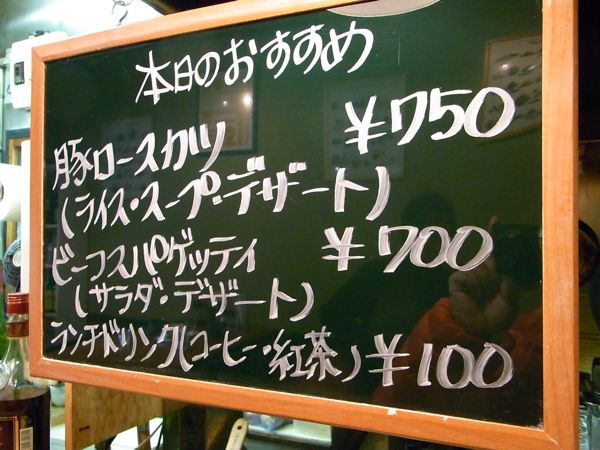 本日のおすすめ
豚ロースカツ ¥750
(ライス・スープ・デザート)
ビーフスパゲッティ ¥700
(サラダ・デザート)
ランチドリンク(コーヒー・紅茶) ¥100